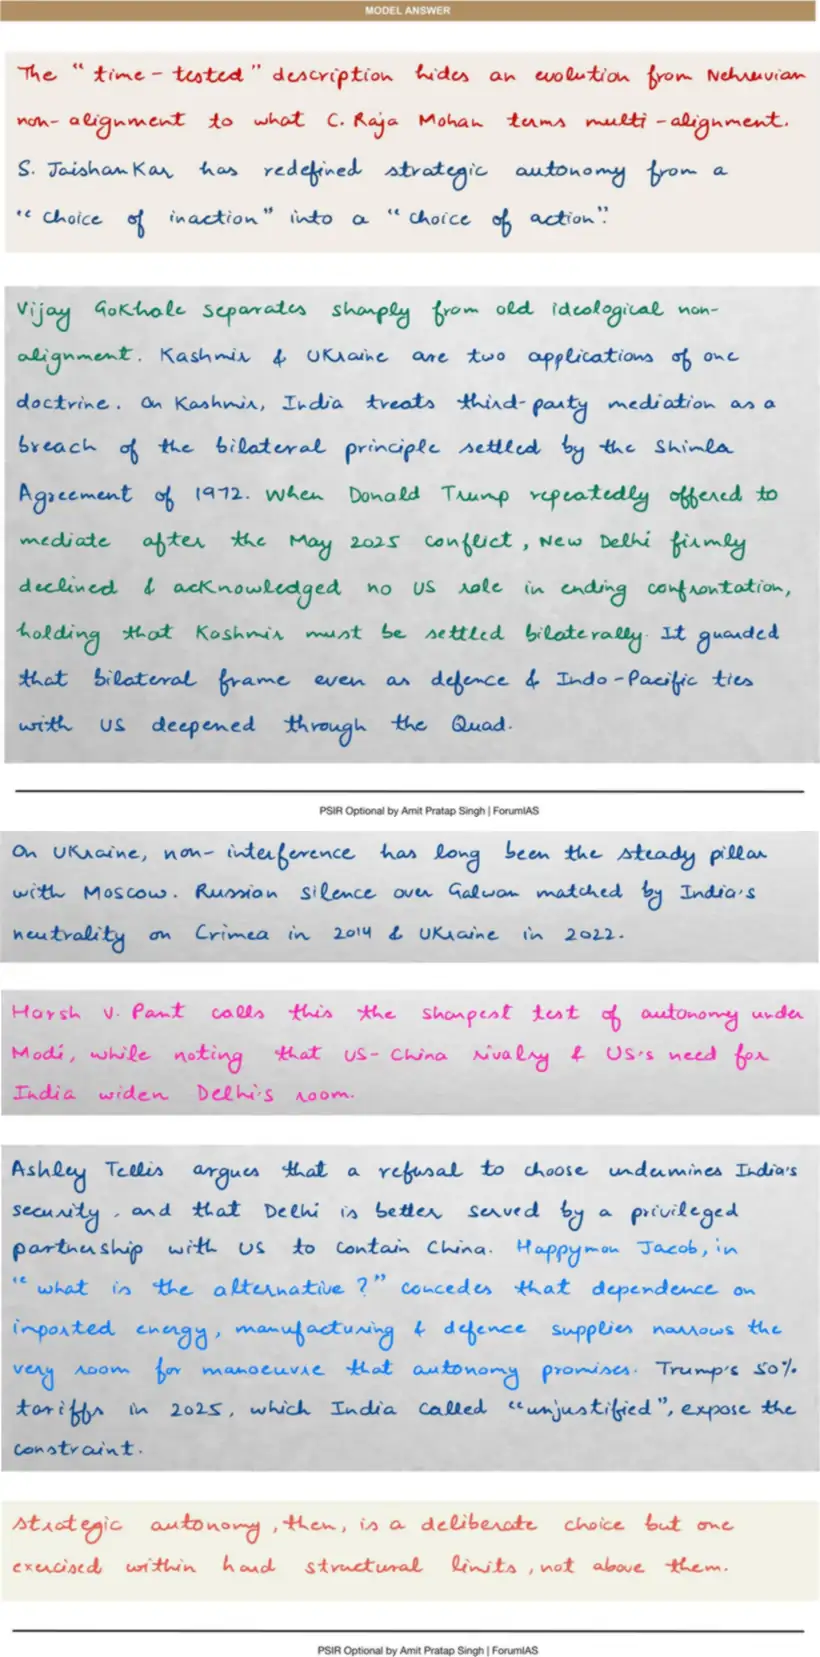 MODEL ANSWER
The "time-tested" description hides an evolution from Nehruvian
non-alignment to what C. Raja Mohan terms multi-alignment.
S. Jaishankar has redefined strategic autonomy from a
"choice of inaction" into a "choice of action".
Vijay Gokhale separates sharply from old ideological non-
alignment. Kashmir & Ukraine are two applications of one
doctrine. On Kashmir, India treats third-party mediation as a
breach of the bilateral principle settled by the Shimla
Agreement of 1972. When Donald Trump repeatedly offered to
mediate after the May 2025 conflict, New Delhi firmly
declined & acknowledged no US role in ending confrontation,
holding that Kashmir must be settled bilaterally. It guarded
that bilateral frame even as defence & Indo-Pacific ties
with US deepened through the Quad.
PSIR Optional by Amit Pratap Singh | ForumIAS
On Ukraine, non-interference has long been the steady pillar
with Moscow. Russian silence over Galwan matched by India's
neutrality on Crimea in 2014 & Ukraine in 2022.
Harsh V. Pant calls this the sharpest test of autonomy under
Modi, while noting that US-China rivalry & US's need for
India widen Delhi's room.
Ashley Tellis argues that a refusal to choose undermines India's
security, and that Delhi is better served by a privileged
partnership with US to contain China. Happymon Jacob, in
"what is the alternative?" concedes that dependence on
imported energy, manufacturing & defence supplies narrows the
very room for manoeuvre that autonomy promises. Trump's 50%
tariffs in 2025, which India called "unjustified", expose the
constraint.
strategic autonomy, then, is a deliberate choice but one
exercised within hard structural limits, not above them.
PSIR Optional by Amit Pratap Singh | ForumIAS